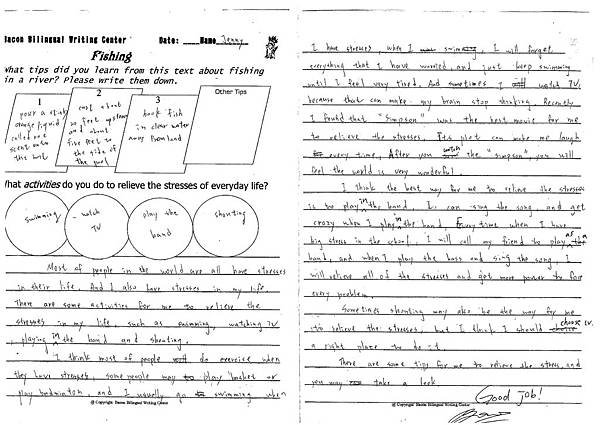 Bacon Bilingual Writing Center
Date: Name Jenny
Fishing
What tips did you learn from this text about fishing
in a river? Please write them down.
1
pour a
orange liquid
called
scent onto
the
2
cast about
feet upstream
and about
five feet to
the side of
the pool
3
hook fish
in clear water
away from land
Other Tips
What activities do you do to relieve the stresses of everyday life?
swimming
watch
TV
play the
band
shouting
Most of people in the world are all have stresses
in their life. And I also have stresses in my life.
There are some activities for me to relieve the
stresses in my life, such as swimming, watching TV
, playing in the band and shouting.
I think most of people do exercise when
they have stresses, some people may play basket or
play badminton, and I usually go swimming when
© Copyright Bacon Bilingual Writing Center
I have stresses, when I swimming, I will forget
everything that I have worried, and just keep swimming
until I feel very tired. And sometimes I watch TV.
because that can make my brain stop thinking. Recently
I found that "Simpson" was the best movie for me
to relieve the stresses. Its plot can make me laugh
every time. After you watch the "Simpson" you will
feel the world is very wonderful.
I think the best way for me to relieve the stresses
is to play in the band. I can sing the song, and get
crazy when I play in the band. Every time when I have
big stress in the school, I will call my friend to play
band, and when I play the bass and sing the song, I
will relieve all of the stresses and get more power to face
every problem.
Sometimes shouting may also be the way for me
to relieve the stresses, but I think I should choose
a right place to do it.
There are some tips for me to relieve the stress, and
you may take a look.
Good job!
© Copyright Bacon Bilingual Writing Center